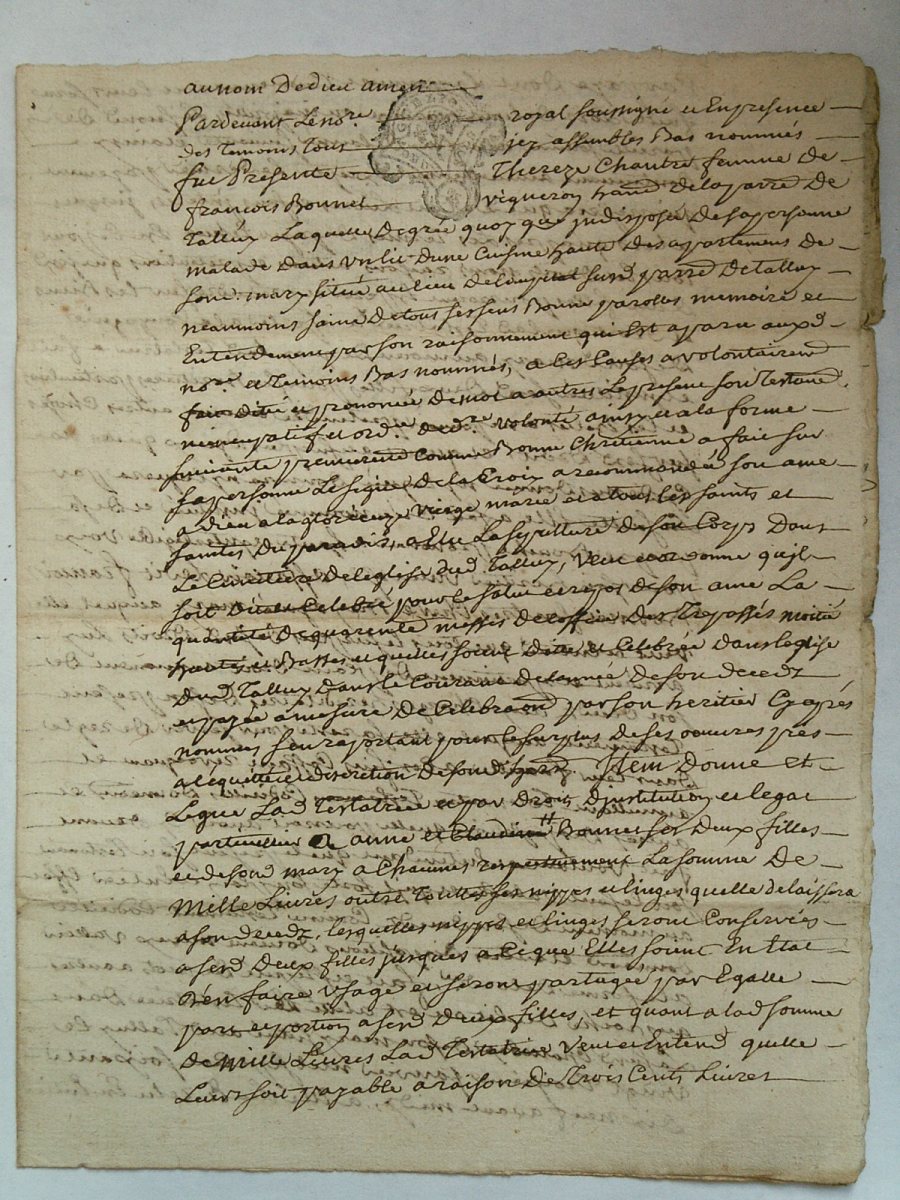 au nom De dieu amen
Pardevant Le no.re royal soussigné et En presence
des Temoins Tous assemblés Bas nommés
fut Presente Thereze Chantre femme de
françois Bonnet vigneron hand de la parre De
Talluy Laquelle De gré quoy que jndisposée De sa personne
malade Dans vn lit Dune Cuisine haute Des apartemens De
son mary situé au lieu De sur.d parre.d De Talluy
neanmoins saine De tous ses sens Bonne parolles memoire et
Entendement par son raisonnement qui Est aparu aux d.
no.re et Temoins Bas nommés, a Les Causes a volontairem.t
fait Dicté et prononcé De mot a autres Le presens son Testamt.
nuncupatif et ord.re De d.re volonté ainsy et a la forme
suivante premierem.t Comme Bonne Chretienne a fait sur
sa personne Le signe De la Croix a recommandé son ame
a Dieu a la glorieuze vierge marie et a tous les saints et
saintes Du paradis, a Elu La sepulture De son Corps Dans
Le Cimettiere De leglise dud Talluy, veut et ordonne quil
soit Dit et Celebré pour le salut et repos De son ame La
quantité De quarente messes De loffice Des Trepassés moitié
hautes et Basses et quelles soient Dittes et Celebrée Dans leglise
Dud Talluy Dans le Courant De lannée De son decedz
et payée a mesure De Celebraon par son heritier Cy aprés
nommés sen raportant pour le surplus De ses oeuvres pies
a la discretion De son d. Item Donne et
Legue La d Testatrice et par Droit Djnstitution et legat
particullier a anne et Claudine Bonnet ses Deux filles
et de son d mary a Chacunes respectivement La somme De
Mille Livres outre Touttes ses nippes et linges quelle delaissera
a son decedz, lesquelles nippes et linges seront Conservées
a sesd Deux filles jusques a Ce que Elles soient En Etat
D'en faire vsage et seront partagée par Egalle
part et portion a sesd Deux filles, et quant a lad somme
De Mille Livres Lad Testatrice veut et Entend quelle
Leur soit payable a raison De Trois Cents Livres